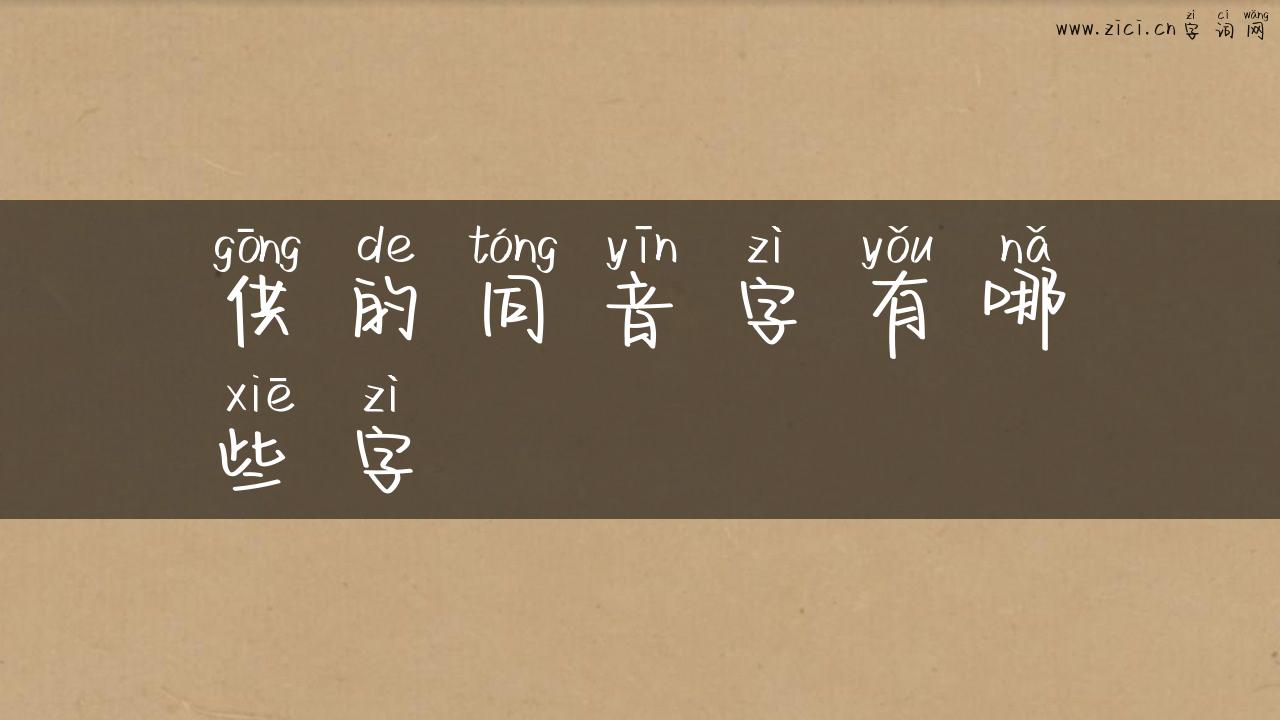 zì cí wǎng
www.zici.cn 字 词 网
gōng de tóng yīn zì yǒu nǎ
供 的 同 音 字 有 哪
xiē zì
些 字